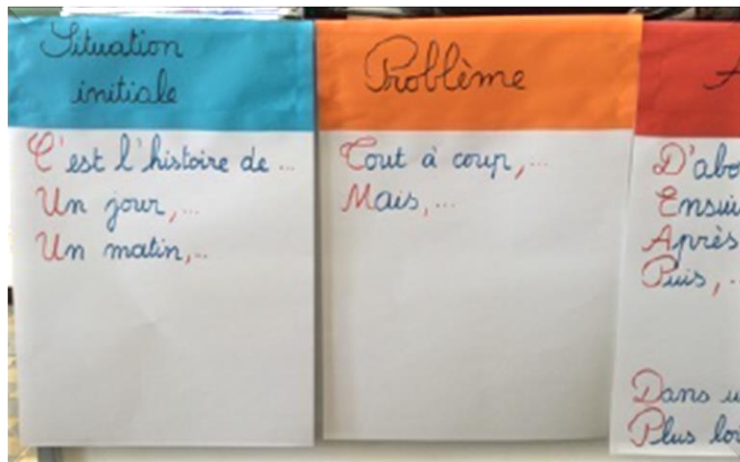 Situation
initiale
C'est l'histoire de ...
Un jour,...
Un matin,...
Problème
Tout à coup,...
Mais,...
D'abo
Ensui
Après
Puis,
Dans u
Plus loi